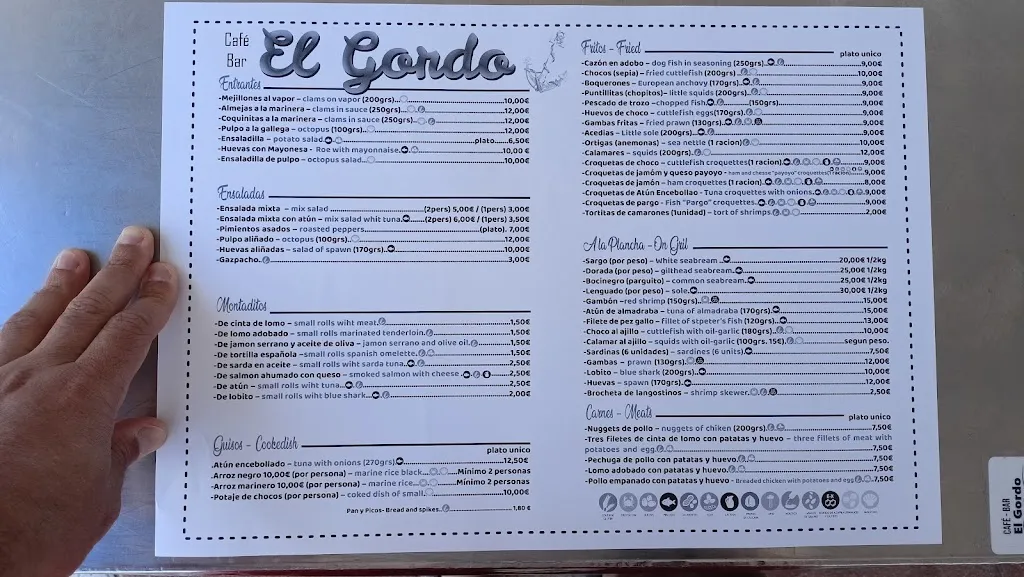 Café
Bar
El Gordo
Entrantes
-Mejillones al vapor - clams on vapor (200grs)...10,00€
-Almejas a la marinera - clams in sauce (250grs)...12,00€
-Coquinitas a la marinera - clams in sauce (250grs)...12,00€
-Pulpo a la gallega - octopus (100grs)...12,00€
-Ensaladilla - potato salad...plato...6,50€
-Huevas con Mayonesa - Roe with mayonnaise...10,00 €
-Ensaladilla de pulpo - octopus salad...10,00€
Ensaladas
-Ensalada mixta - mix salad...(2pers) 5,00€ / (1pers) 3,00€
-Ensalada mixta con atún - mix salad whit tuna...(2pers) 6,00€ / (1pers) 3,50€
-Pimientos asados - roasted peppers...(plato). 7,00€
-Pulpo aliñado - octopus (100grs)...12,00€
-Huevas aliñadas - salad of spawn (170grs)...10,00€
-Gazpacho...3,00€
Montaditos
-De cinta de lomo - small rolls wiht meat...1,50€
-De lomo adobado - small rolls marinated tenderloin...1,50€
-De jamon serrano y aceite de oliva - jamon serrano and olive oil...1,50€
-De tortilla española -small rolls spanish omelette...1,50€
-De sarda en aceite - small rolls wiht sarda tuna...2,50€
-De salmon ahumado con queso - smoked salmon with cheese...2,50€
-De atún - small rolls wiht tuna...2,50€
-De lobito - small rolls wiht blue shark...2,00€
Guisos - Cookedish
plato unico
.Atún encebollado - tuna with onions (270grs)...12,50€
.Arroz negro 10,00€ (por persona) - marine rice black...Mínimo 2 personas
-Arroz marinero 10,00€ (por persona) - marine rice...Mínimo 2 personas
-Potaje de chocos (por persona) - coked dish of small...10,00€
Pan y Picos- Bread and spikes...1,80 €
Fritos - Fried
plato unico
-Cazón en adobo - dog fish in seasoning (250grs)...9,00€
-Chocos (sepia) - fried cuttlefish (200grs)...10,00€
-Boquerones - European anchovy (170grs)...9,00€
-Puntillitas (chopitos)- little squids (200grs)...9,00€
-Pescado de trozo -chopped fish...(150grs)...9,00€
-Huevos de choco - cuttlefish eggs(170grs)...9,00€
-Gambas fritas - fried prawn (130grs)...9,00€
-Acedias - Little sole (200grs)...9,00€
-Ortigas (anemonas) - sea nettle (1 racion)...10,00€
-Calamares - squids (200grs)...12,00€
-Croquetas de choco - cuttlefish croquettes(1 racion)...9,00€
-Croquetas de jamón y queso payoyo - ham and cheese "payoyo" croquettes(1 racion)...9,00€
-Croquetas de jamón - ham croquettes (1 racion)...8,00€
-Croquetas de Atún Encebollao - Tuna croquettes with onions...9,00€
-Croquetas de pargo - Fish "Pargo" croquettes...9,00€
-Tortitas de camarones (1unidad) - tort of shrimps...2,00€
A la Plancha - On Gril
-Sargo (por peso) - White seabream...20,00€ 1/2kg
-Dorada (por peso) - gilthead seabream...25,00€ 1/2kg
-Bocinegro (parguito) - common seabream...25,00€ 1/2kg
-Lenguado (por peso) - sole...30,00€ 1/2kg
-Gambón -red shrimp (150grs)...15,00€
-Atún de almadraba - tuna of almadraba (170grs)...15,00€
-Filete de pez gallo - fillet of stpeter's fish (120grs)...13,00€
-Choco al ajillo - cuttlefish with oil-garlic (180grs)...10,00€
-Calamar al ajillo - squids with oil-garlic (100grs. 15€)...segun peso.
-Sardinas (6 unidades) - sardines (6 units)...7,50€
-Gambas - prawn (130grs)...12,00€
-Lobito - blue shark (200grs)...10,00€
-Huevas - spawn (170grs)...12,00€
-Brocheta de langostinos - shrimp skewer...2,50€
Carnes - Meats
plato unico
-Nuggets de pollo - nuggets of chiken (200grs)...7,50€
-Tres filetes de cinta de lomo con patatas y huevo - three fillets of meat with
potatoes and egg...7,50€
-Pechuga de pollo con patatas y huevo...7,50€
-Lomo adobado con patatas y huevo...7,50€
-Pollo empanado con patatas y huevo - Breaded chicken with potatoes and egg...7,50€
CAFÉ - BAR
El Gordo